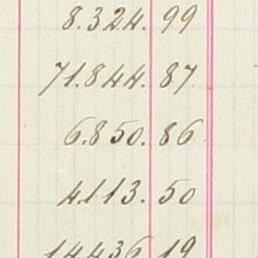 8.324. 99
71.844. 87
6.850. 86
4.113. 50
14436 19